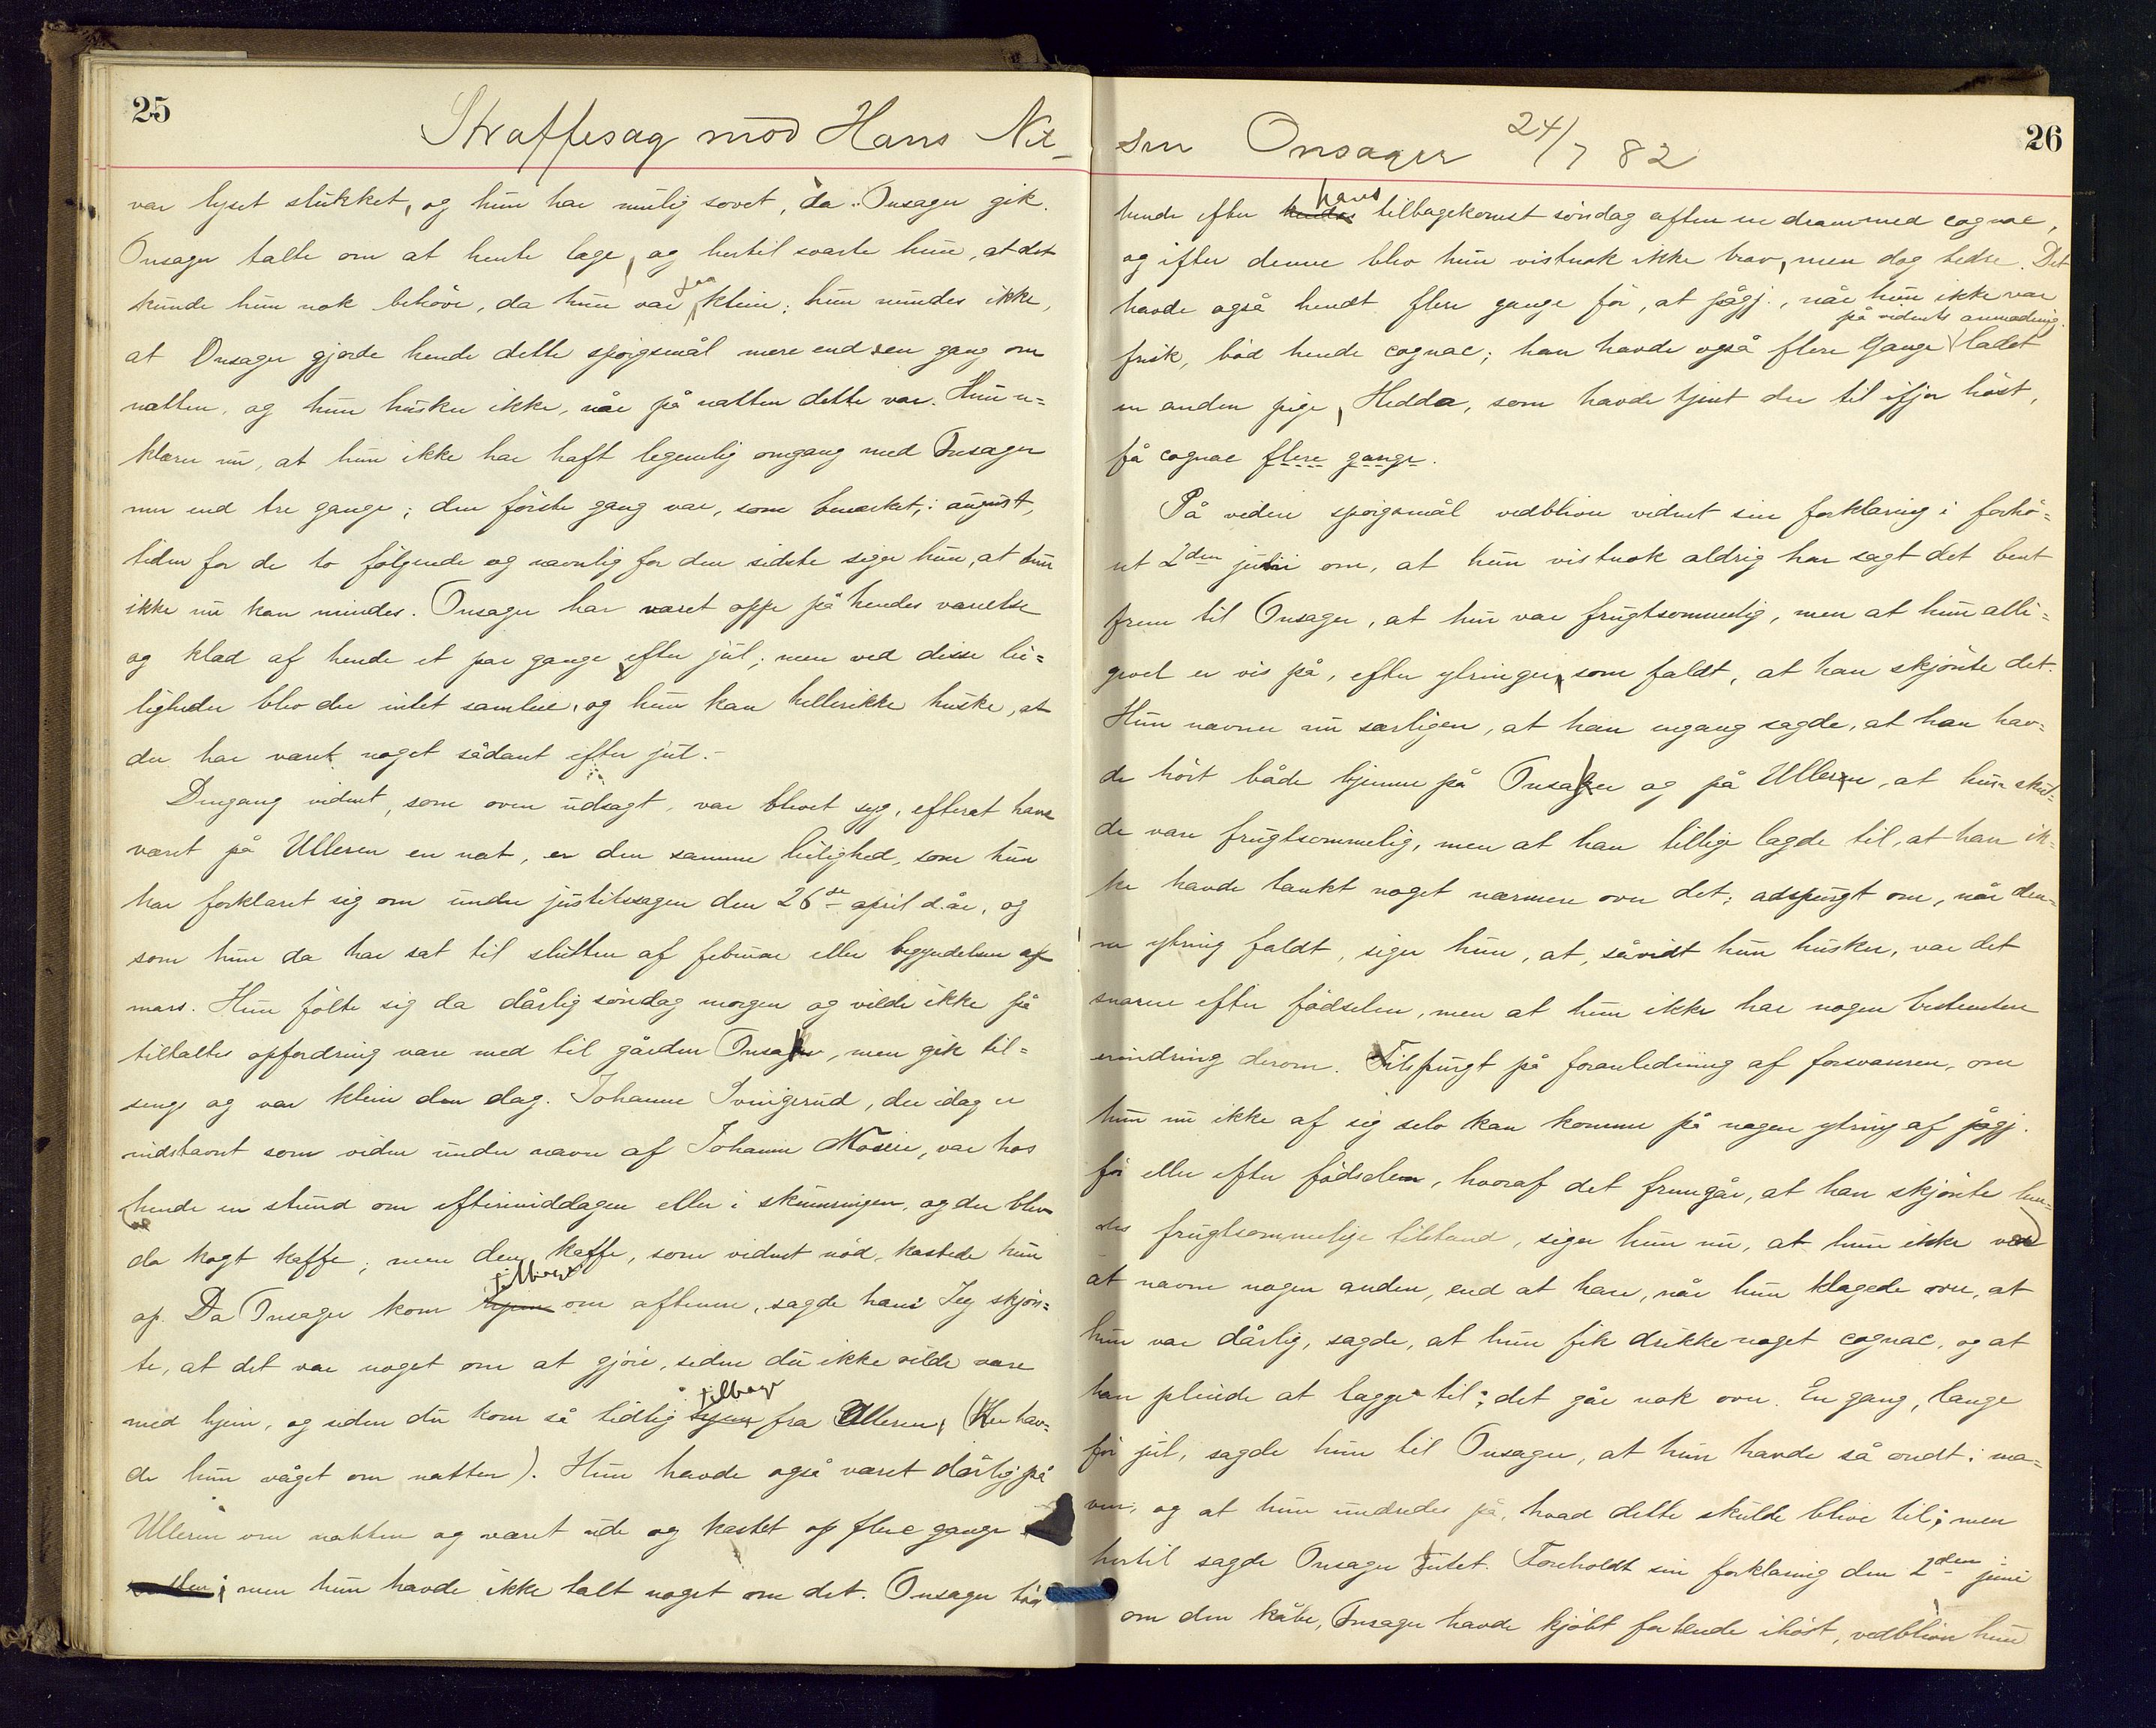 25
Straffesag mod Hans Nil-
var lyset slukket, og hun har mulig sovet, da Onsager gik.
Onsager talte om at hente læge, og hertil svarte hun, at det
kunde hun nok behöve, da hun var saa klein; hun mindes ikke,
at Onsager gjorde hende dette spörgsmål mere end en gang om
natten, og hun husker ikke, når på natten dette var. Hun er=
klærer nu, at hun ikke har haft legemlig omgang med Onsager
mer end tre gange; den förste gang var, som bemærket, i august,
tiden for de to fölgende og navnlig for den sidste siger hun, at hun
ikke nu kan mindes. Onsager har været oppe på hendes værelse
og klåd af hende et par gange efter jul; men ved disse lei=
ligheder blev der intet samleie, og hun kan heller ikke huske, at
der har været noget sådant efter jul.-
Dengang vidnet, som oven udsagt, var blevet syg, efterat have
været på Ulleren en nat, er den samme leilighed, som hun
har forklaret sig om under justitssagen den 26de april d. år, og
som hun da har sat til slutten af februar eller begyndelsen af
mars. Hun fölte sig da dårlig söndag morgen og vilde ikke på
tiltaltes opfordring være med til gården Onsaker, men gik til=
sengs og var klein den dag. Johanne Svingerud, der idag er
indstævnt som vidne under navn af Johanne Moseie, var hos
hende en stund om eftermiddagen eller i skumringen, og der blev
da kogt kaffe; men den kaffe, som vidnet nöd, kastede hun
op. Da Onsager kom hjem tilbage om aftenen, sagde han: Jeg skjön=
te, at det var noget om at gjöre, siden du ikke vilde være
med hjem, og siden du kom så tidlig hjem tilbage fra Ulleren, (Her hav=
de hun våget om natten). Hun havde også været dårlig på
Ulleren om natten og været ude og kastet op flere gange
natten; men hun havde ikke talt noget om det. Onsager
26
sen Onsager 24/7 82
hende efter hendes hans tilbagekomst söndag aften en dram med cognac,
og efter denne blev hun vistnok ikke brav, men dog bedre. Det
havde også hendt flere gange för, at pågj., når hun ikke var
frisk, böd hende cognac; han havde også flere gange på vidnets anmodning ladet
en anden pige, Hedda, som havde tjent der til ifjor höst,
få cognac flere gange.
På videre spörgsmål vedbliver vidnet sin forklaring i forhö=
ret 2den juni om, at hun vistnok aldrig har sagt det bent
frem til Onsager, at hun var frugtsommelig, men at hun alli=
gevel er vis på, efter ytringer, som faldt, at han skjönte det.
Hun nævner nu særligen, at han engang sagde, at han hav=
de hört både hjemme på Onsaker og på Ulleren, at hun skul=
de være frugtsommelig, men at han tillige lagde til, at han ik=
ke havde tænkt noget nærmere over det; adspurgt om, når den=
ne ytring faldt, siger hun, at, såvidt hun husker, var det
snarere efter födselen, men at hun ikke har nogen bestemtere
erindring derom. Tilspurgt på foranledning af forsvareren, om
hun nu ikke af sig selv kan komme på nogen ytring af pågj.
för eller efter födselen, hvoraf det fremgår, at han skjönte hen-
des frugtsommelige tilstand, siger hun nu, at hun ikke ved
at nævne nogen anden, end at han, når hun klagede over, at
hun var dårlig, sagde, at hun fik drikke noget cognac, og at
han pleiede at lægge til: det går nok over. En gang, længe
för jul, sagde hun til Onsager, at hun havde så ondt i ma=
ven, og at hun undredes på, hvad dette skulde blive til; men
hertil sagde Onsager intet. Foreholdt sin forklaring den 2den juni
om den kåbe, Onsager havde kjöbt for hende ihöst, vedbliver hun